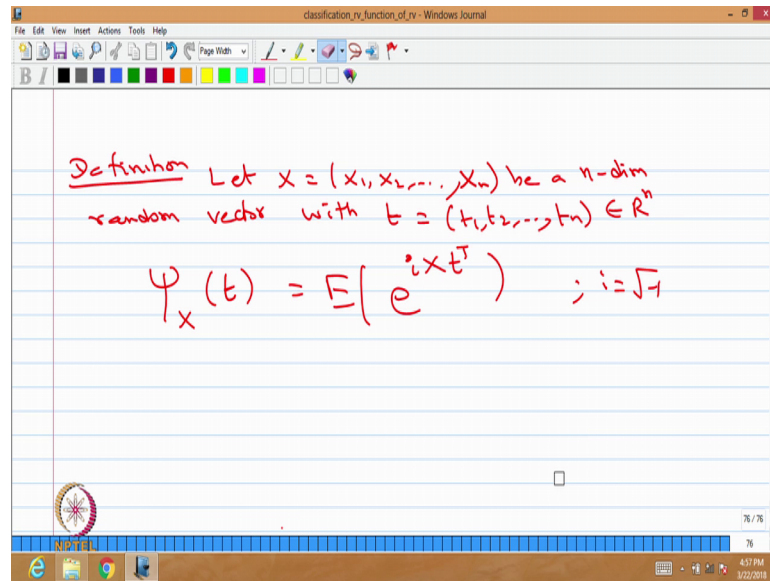 classification_rv_function_of_rv - Windows Journal
File Edit View Insert Actions Tools Help
Page Width
B I
Definition Let X = (X₁, X₂, ..., Xₙ) be a n-dim
random vector with t = (t₁, t₂, ..., tₙ) ∈ Rⁿ
Ψ_X (t) = E( e^{i X t^T} ) ; i = √-1
NPTEL
76 / 76
76
4:57 PM
3/22/2018